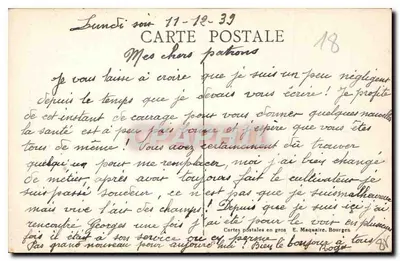 Lundi soir 11-12-39
CARTE POSTALE
18
Mes chers patrons
Je vous laisse à croire que je suis un peu négligent
depuis le temps que je devais vous écrire! Je profite
de cet instant de courage pour vous donner quelques nouvelles
la santé est à peu près bonne et j'espère que vous êtes
tous de même! Vous avez certainement dû trouver
quelqu'un pour me remplacer, moi j'ai bien changé
de métier après avoir toujours fait le cultivateur je
suis passé soudeur, ce n'est pas que je suis malheureux
mais vive l'air des champs! Depuis que je suis ici j'ai
rencontré Georges une fois j'ai été pour le voir en plusieurs
Cartes postales en gros E. Maquaire, Bourges.
fois il était à son service ou en perme!
Pas grand nouveau pour aujourd'hui! Bien le bonjour à tous
Roger